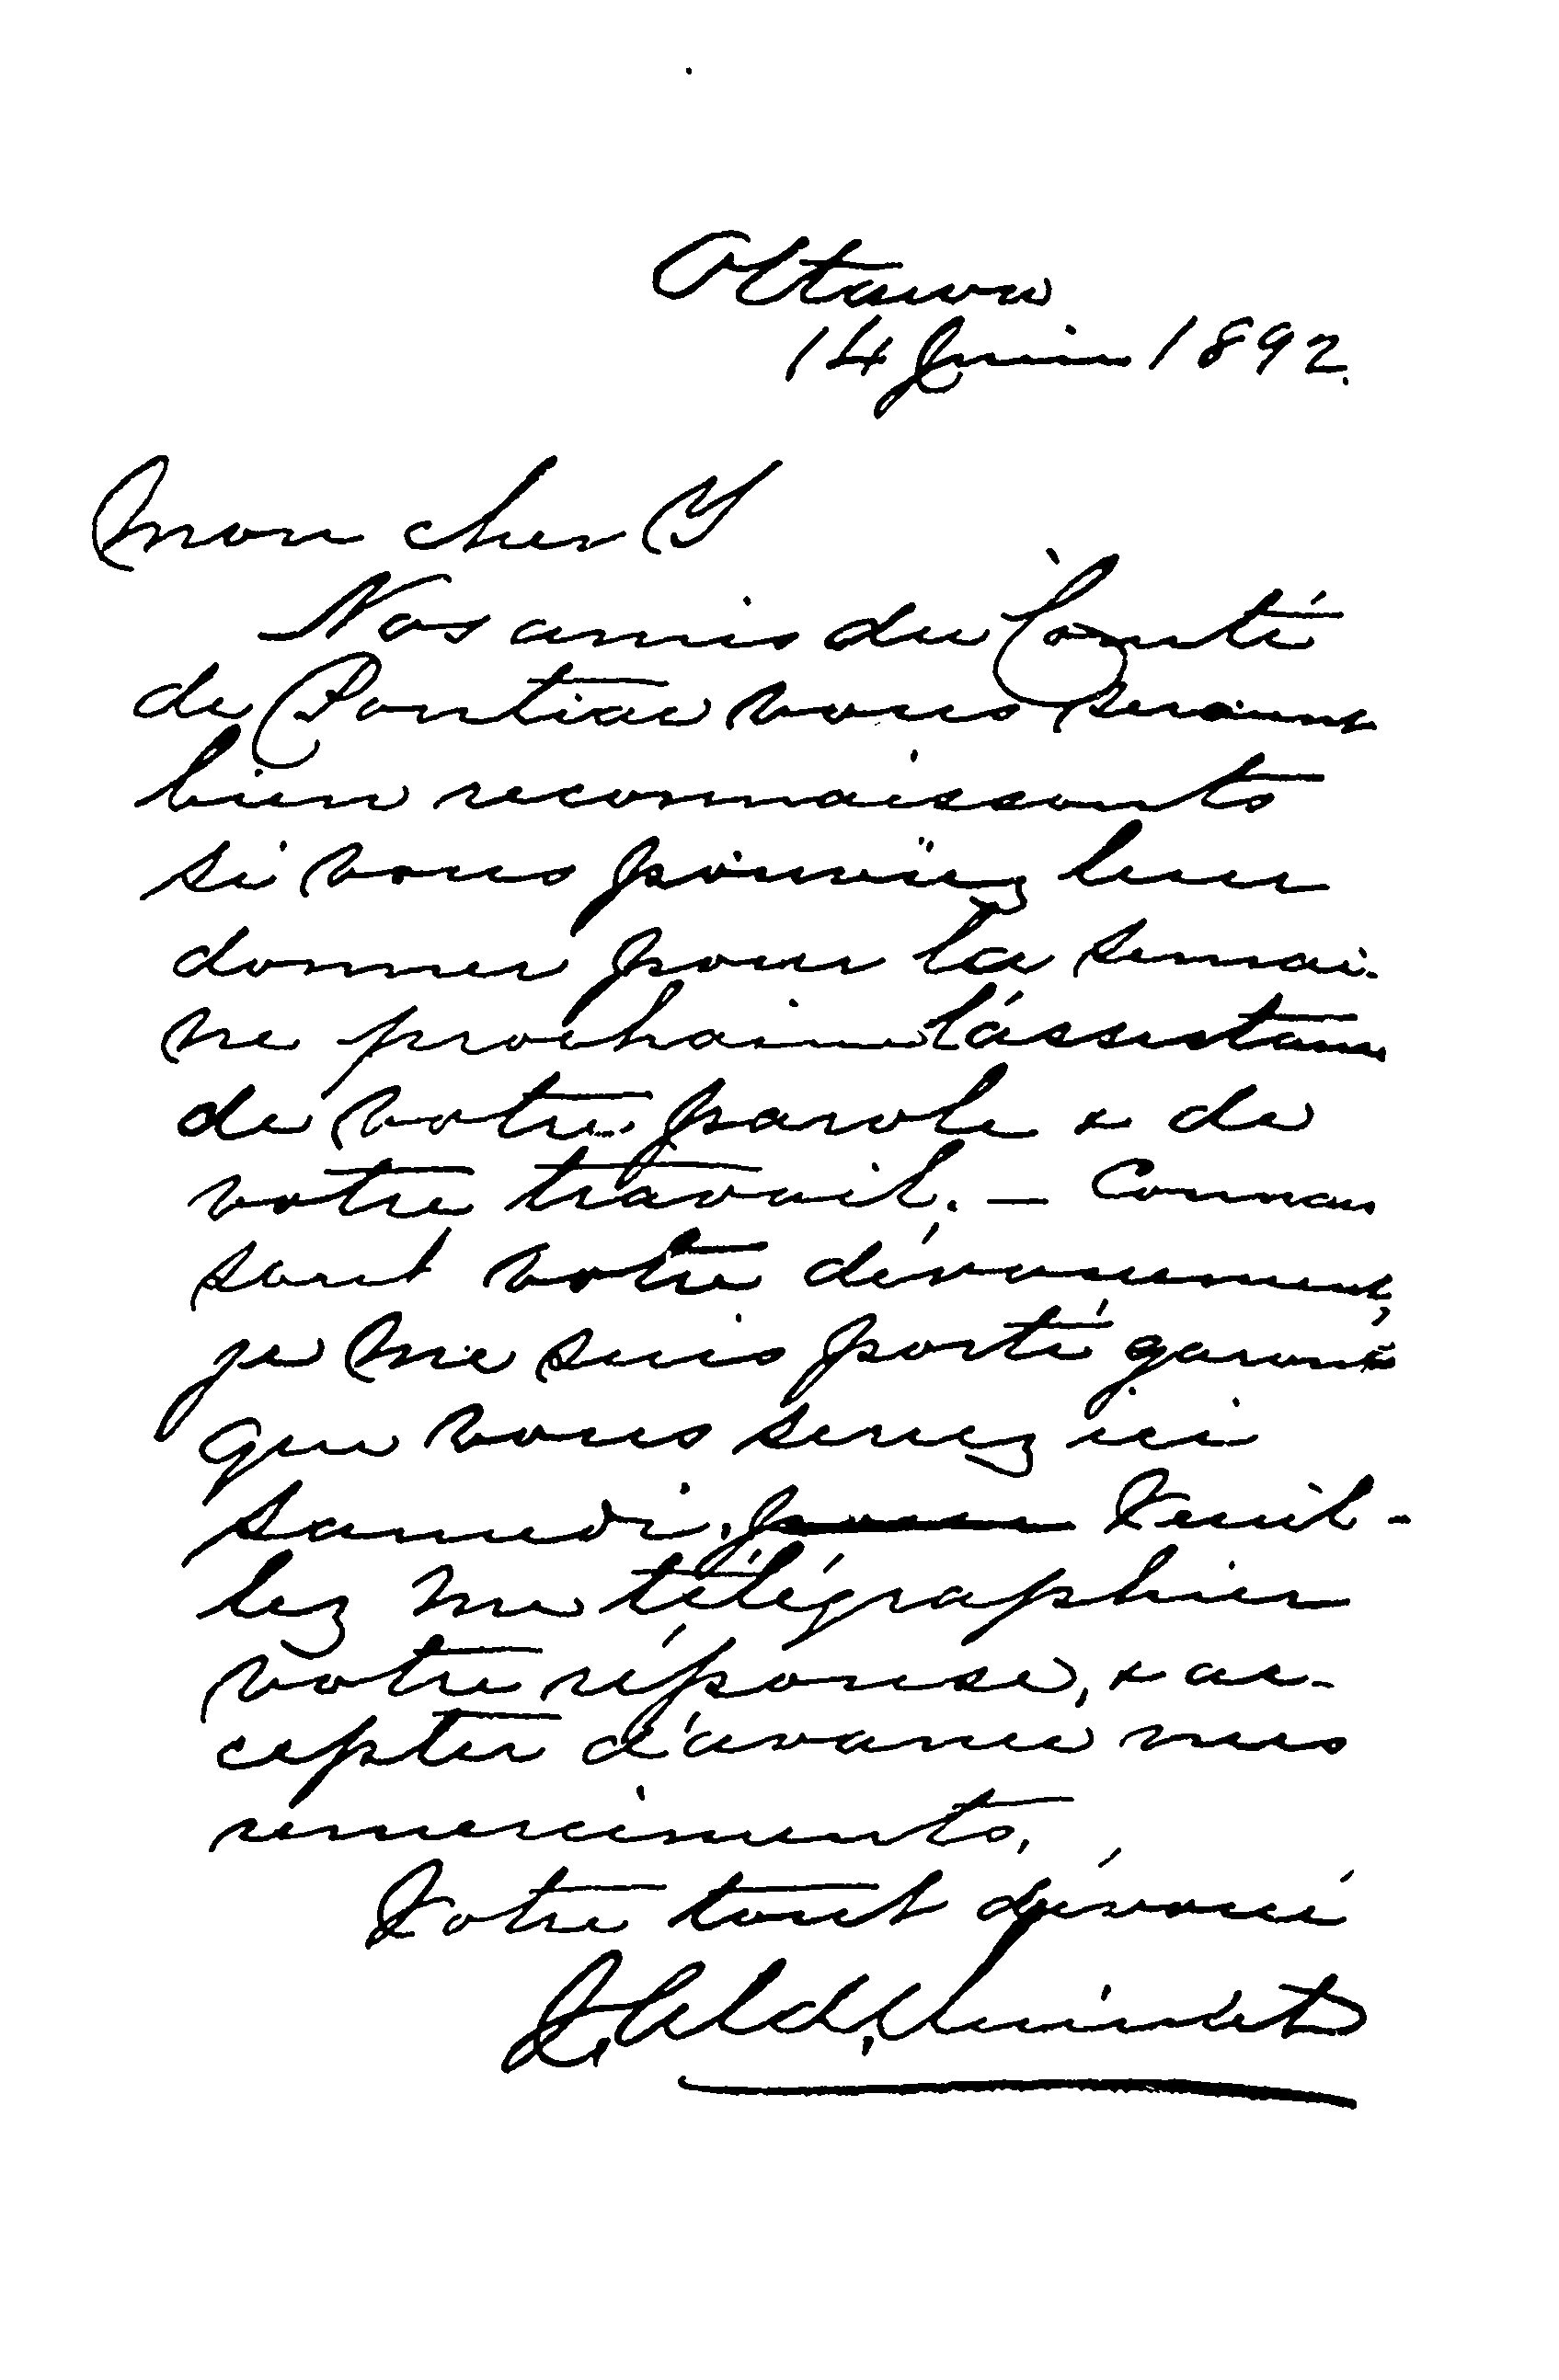 Ottawa
14 Juin 1892.
Mon cher Y
Nos amis du Comté
de Pontiac vous seraient
bien reconnaissants
si vous pouviez leur
donner pour la semai-
ne prochaine l'assistance
de votre parole & de
votre travail. — Connais
sant votre dévouement,
je me suis porté garant
que vous serez ici
samedi. pour Veuil-
lez me télégraphier
votre réponse, & ac-
cepter d'avance mes
remerciments.
Votre tout dévoué
J. Ald. Ouimet